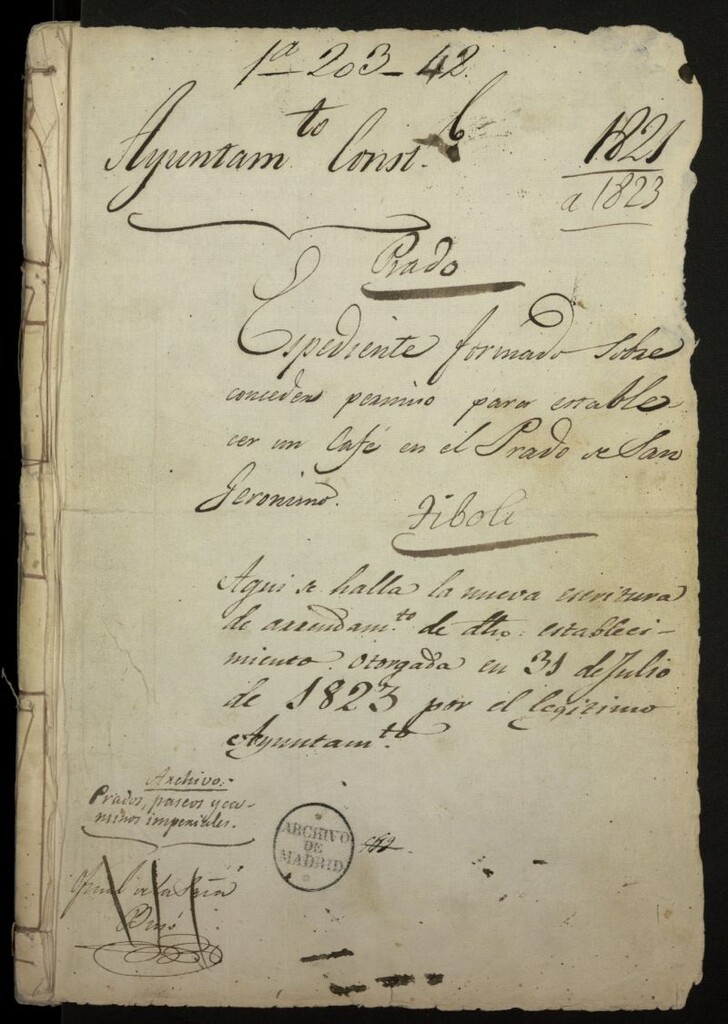 1ª-203-42.
Ayuntam.to Const.l
1821
a 1823
Prado
Espediente formado sobre
conceder permiso para estable
cer un Café en el Prado de San
Geronimo.
Tiboli
Aqui se halla la nueva escritura
de arrendam.to de dho. estableci-
miento. otorgada en 31 de Julio
de 1823 por el legitimo
Ayuntam.to
Archivo.
Prados, paseos y ca-
minos imperiales.
ARCHIVO
DE
MADRID